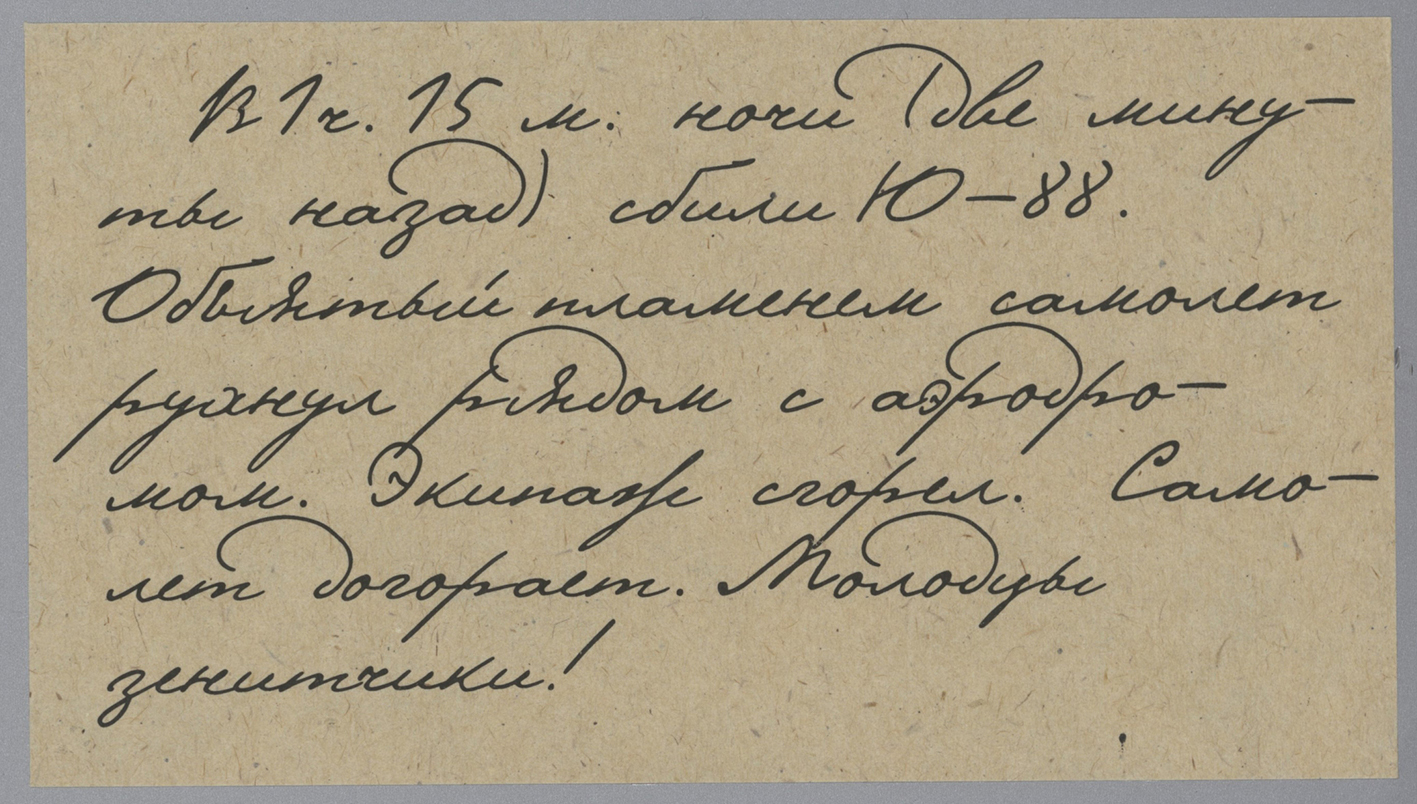 В 1 ч. 15 м. ночи (две мину-
ты назад) сбили Ю-88.
Объятый пламенем самолет
рухнул рядом с аэродро-
мом. Экипаж сгорел. Само-
лет догорает. Молодцы
зенитчики!